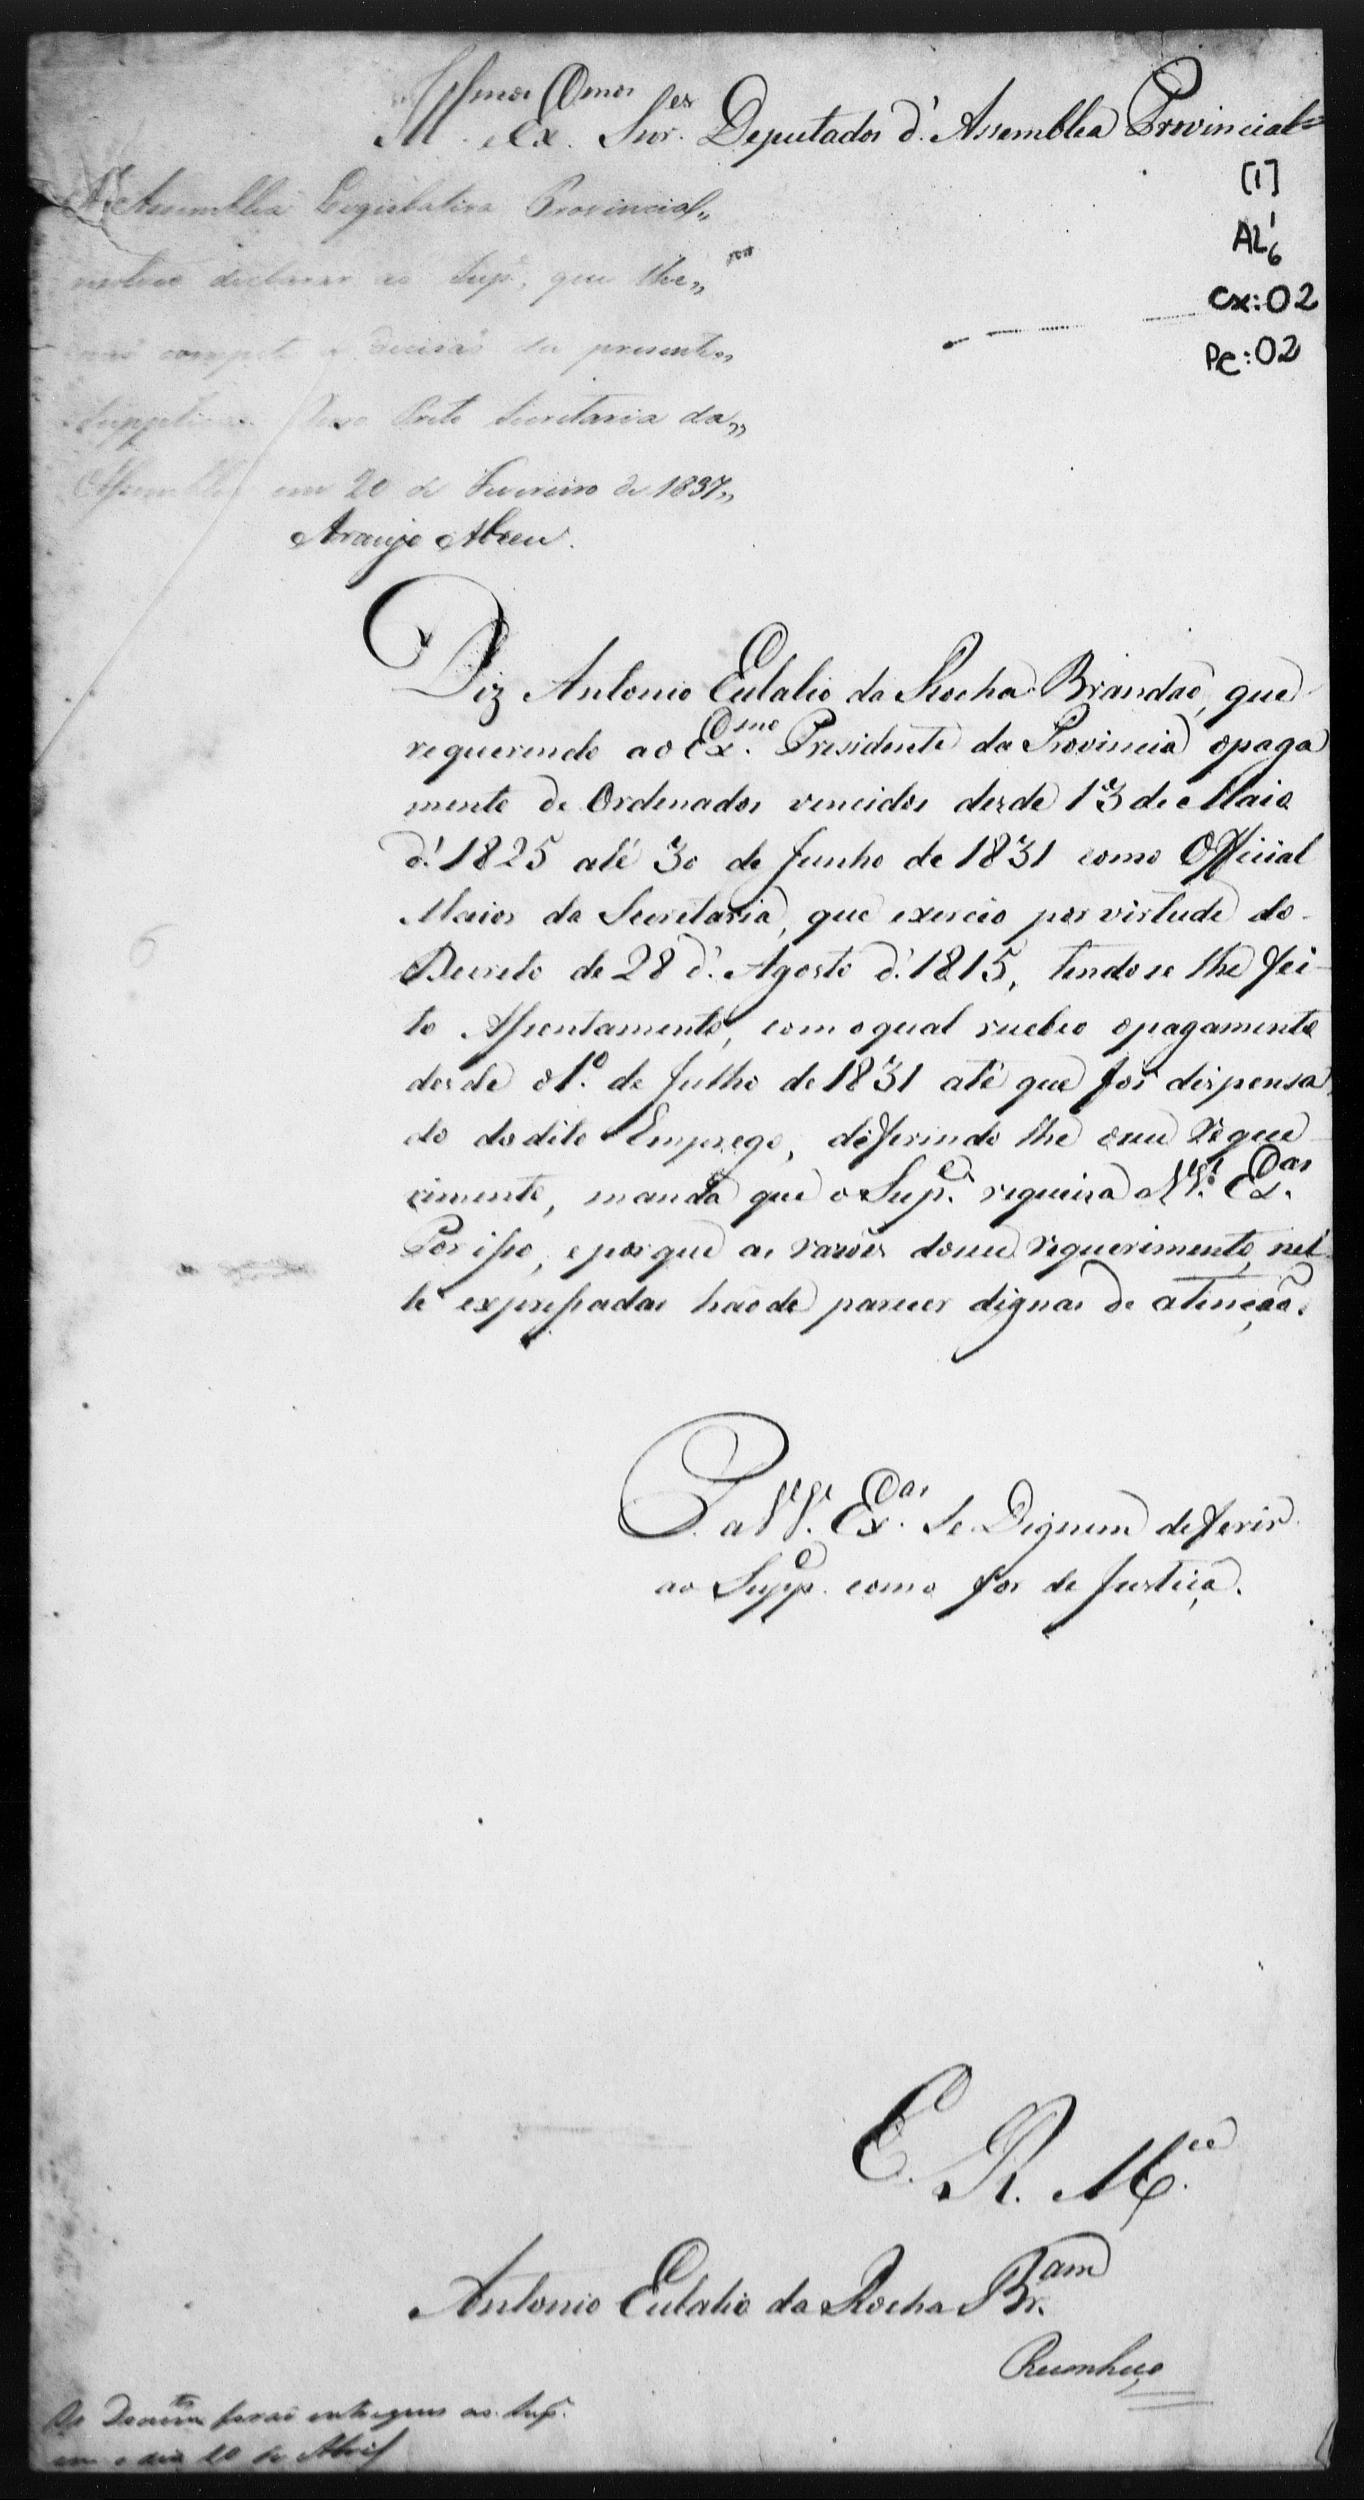 Illmos Exmos Snres Deputados d'Assemblea Provincial
[1]
AL 1/6
Cx:02
Pc:02
A Assemblea Legislativa Provincial
declarar ao Supe, que lhe
não compete a decisão da presente
Supplica. Ouro Preto Secretaria da
Assemblea em 20 de Fevereiro de 1837
Araujo Abreu.
Diz Antonio Eulalio da Rocha Brandão, que
requerendo ao Exmo Presidente da Provincia o paga
mento de Ordenados vencidos desde 13 de Maio
d'1825 até 30 de Junho de 1831 como Official
Maior da Secretaria, que exerceo por virtude do
Decreto de 28 d'Agosto d'1815, tendose lhe fei-
to Assentamento, com o qual recebeo o pagamento
desde o 1º de Julho de 1831 até que foi dispensa
do do dito Emprego, defferindo lhe o seu reque
rimento, manda que o Supe requeira a VVes Exas
Por isso, e porque as razões do seu requerimento, nel-
le expressadas hão de parecer dignas de atenção.
P. a VVes Exas se Dignem defferir
ao Suppe como for de Justiça.
E. R. Mce
Antonio Eulalio da Rocha Bram
Reconheço
6
Os Docum.tos forão entregues ao Supe
em o dia 20 de Abril